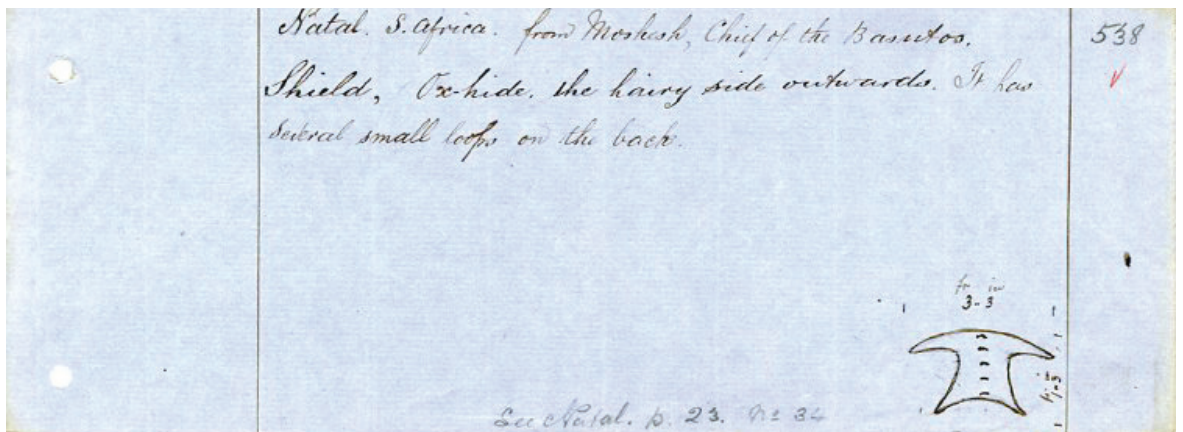 Natal. S. Africa. from Moshesh, Chief of the Basutos. 538
Shield, Ox-hide, the hairy side outwards. It has
several small loops on the back.
ft in
3-3
See Natal. p. 23. No 34